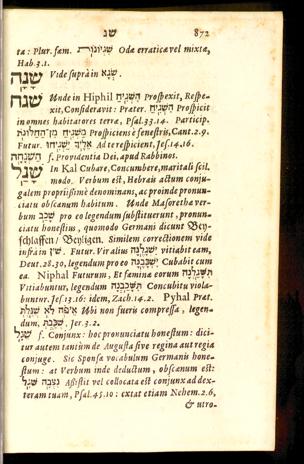 שנ 872
ta: Plur. fœm. שִׁגְיֹנוֹת Odæ erraticæ vel mixtæ,
Hab. 3. 1.
שָׁנָה Vide suprà in שָׁנָא.
שנח Unde in Hiphil הִשְׁגִּיחַ Prospexit, Respe-
xit, Consideravit: Præter. הִשְׁגִּיחַ Prospicit
in omnes habitatores terræ, Psal. 33. 14. Particip.
מַשְׁגִּיחַ מִן הַחַלּוֹנוֹת Prospiciens è fenestris, Cant. 2. 9.
Futur. יַשְׁגִּיחוּ Ad te respicient, Jes. 14. 16.
הַשְׁגָּחָה f. Providentia Dei, apud Rabbinos.
שָׁגַל In Kal Cubare, Concumbere, maritali scil.
modo. Verbum est, Hebræis actum conju-
galem propriissimè denominans, ac proinde pronun-
ciatu obscænum habitum. Unde Masorethæ ver-
bum שָׁכַב pro eo legendum substituerunt, pronun-
ciatu honestius, quomodo Germani dicunt Bey-
schlaffen / Beyligen. Similem correctionem vide
infrà in שִׁין. Futur. Vir alius יִשְׁגָּלֶנָּה vitiabit eam,
Deut. 28. 30, legendum pro eo יִשְׁכָּבֶנָּה Cubabit cum
ea. Niphal Futurum, Et fæminæ eorum תִּשָּׁגַלְנָה
Vitiabuntur, legendum תִּשָּׁכַבְנָה Concubitu viola-
buntur. Jes. 13. 16: idem, Zach. 14. 2. Pyhal Præt.
אֵיפֹה לֹא שֻׁגַּלְתְּ Ubi non fueris compressa, legen-
dum, שֻׁכַּבְתְּ, Jer. 3. 2.
שֵׁגָל f. Conjunx: hoc pronunciatu honestum: dici-
tur autem tantùm de Augusta sive regina aut regia
conjuge. Sic Sponsæ vocabulum Germanis hone-
stum: at Verbum inde deductum, obscænum est:
נִצְּבָה שֵׁגָל Astitit vel collocata est conjunx ad dex-
teram tuam, Psal. 45. 10: extat etiam Nehem. 2. 6,
& utro-